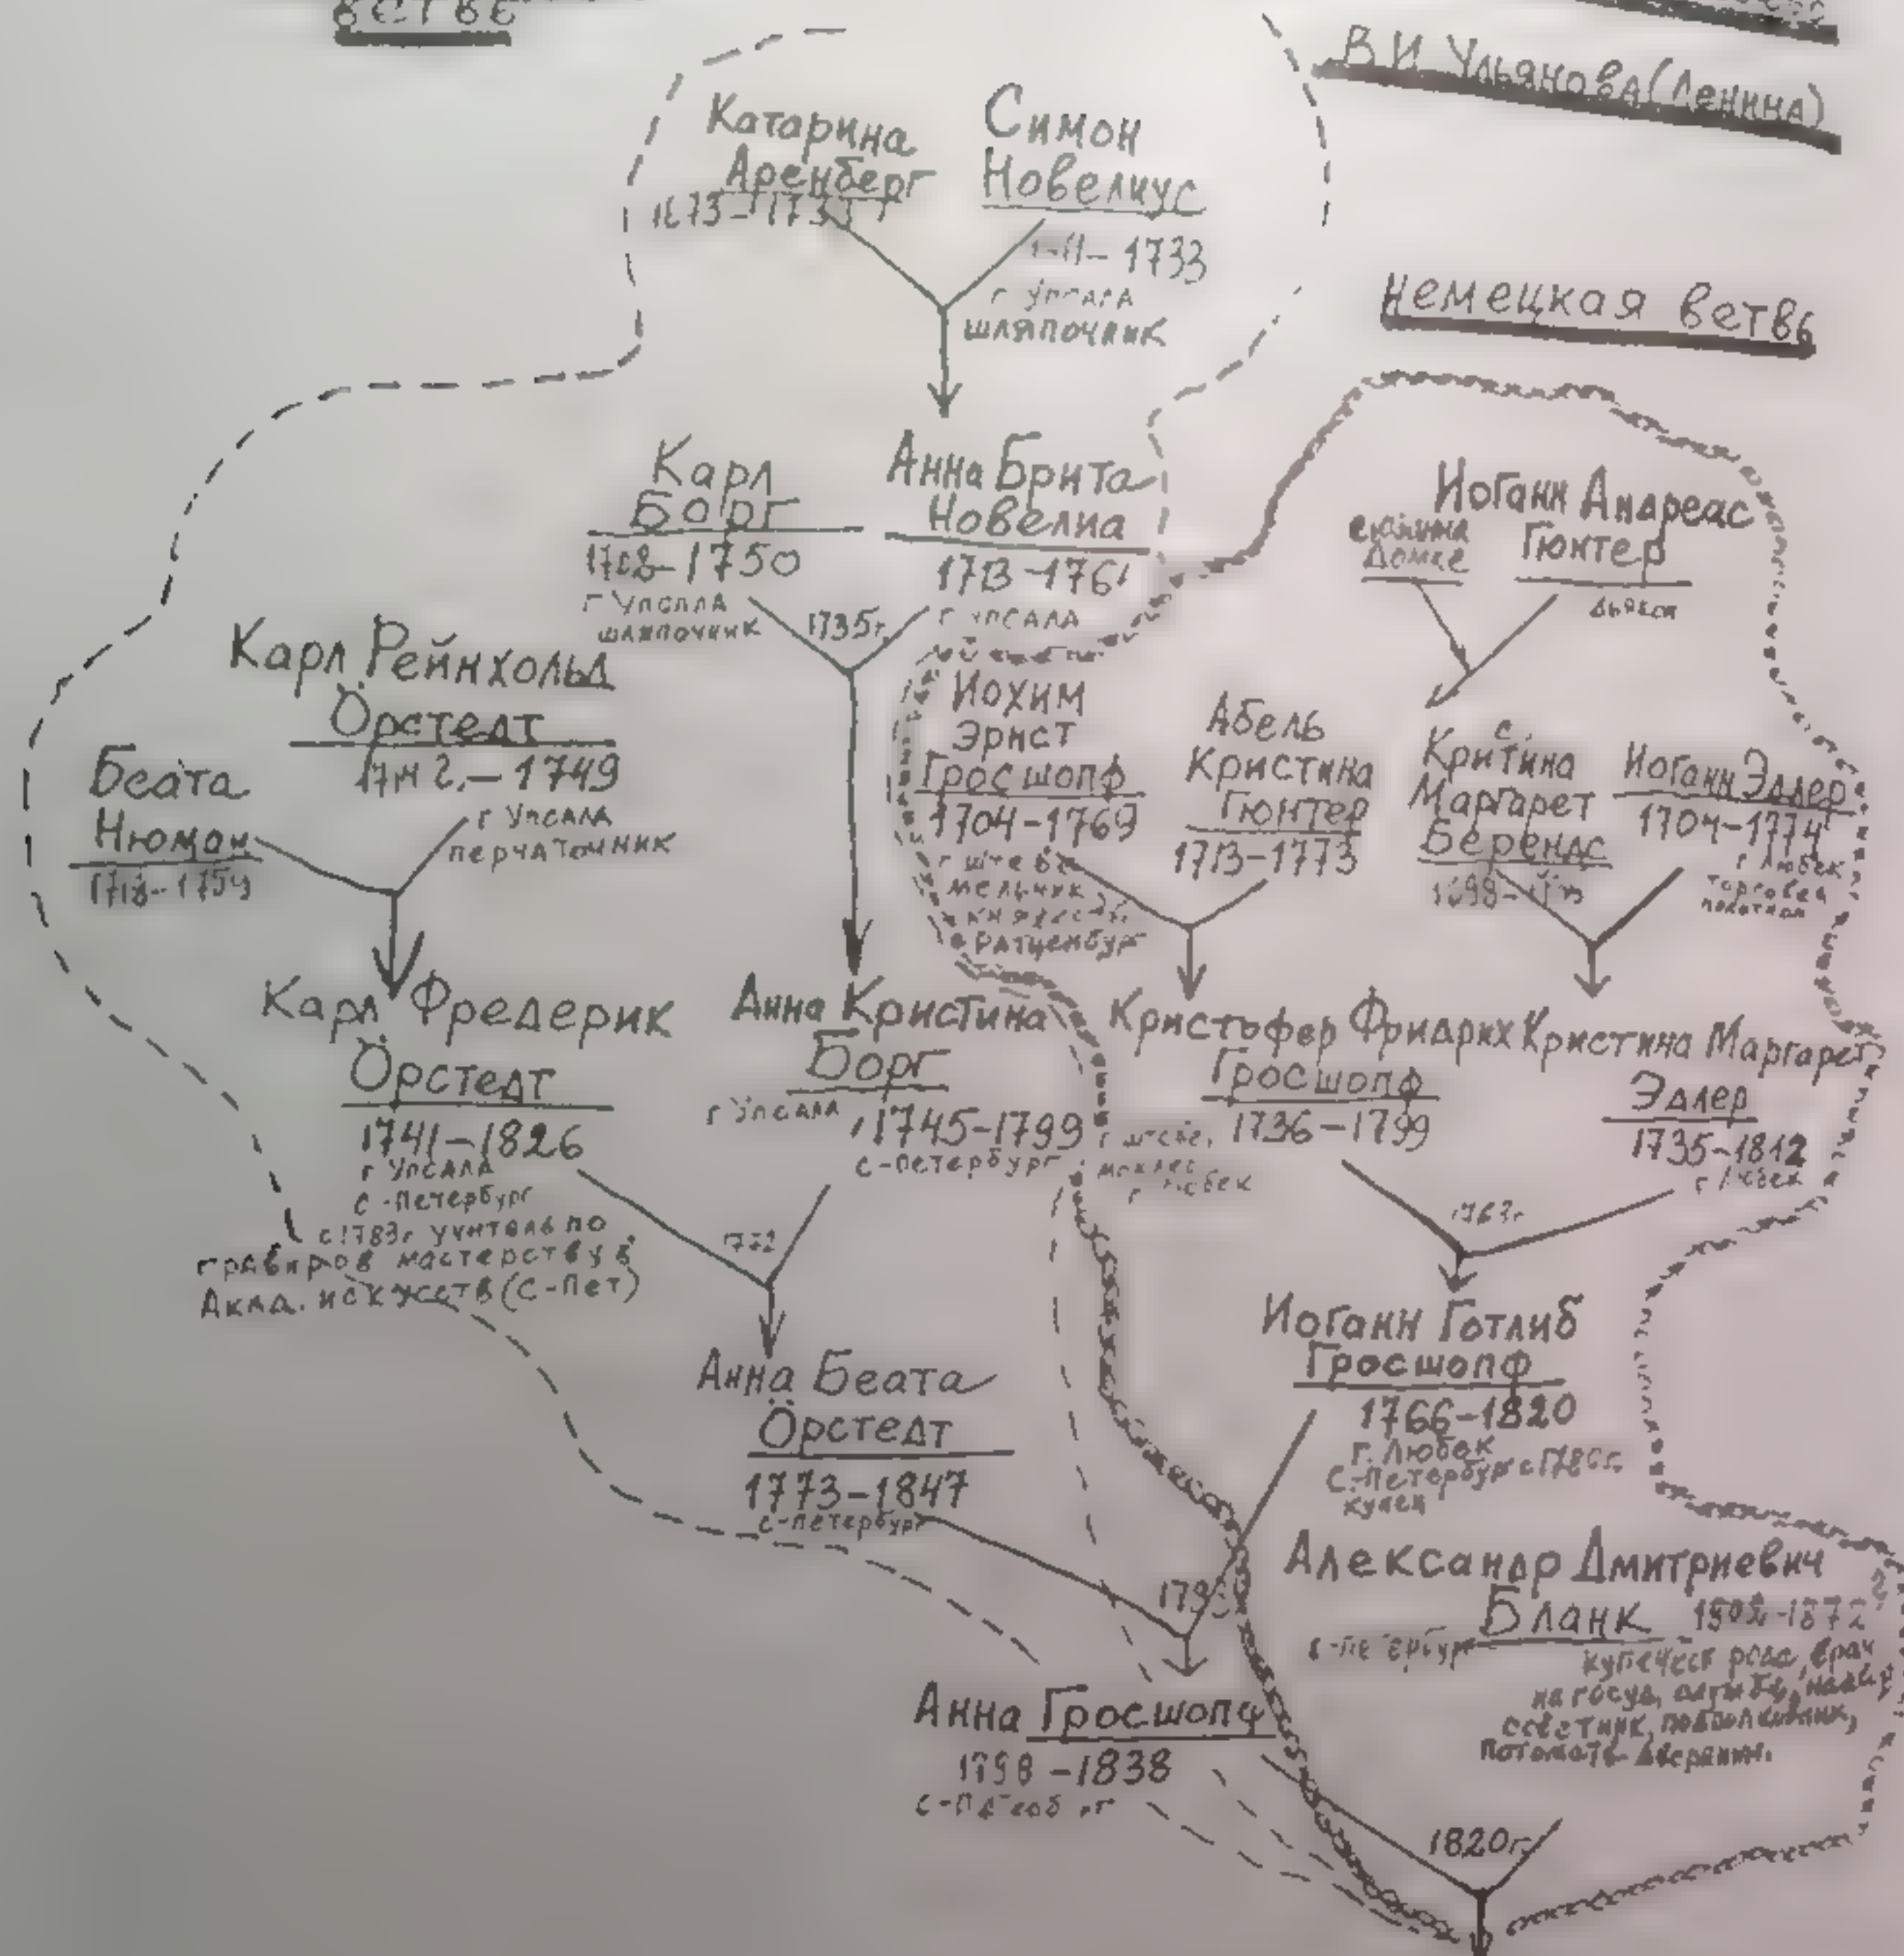 ветвь
В И Ульянова(Ленина)
Катарина
Аренберг
Симон
Новелиус
1733
г Упсала
шляпочник
немецкая ветвь
Карл
Борг
1708-1750
г Упсала
шляпочник
Анна Брита
Новелиа
1713-1761
г Упсала
1735г
Иоганн Андреас
Гюнтер
дьякон
Карл Рейнхольд
Örстедт
- 1749
г Упсала
перчаточник
Беата
Нюман
Иохим
Эрнст
Гросшопф
1704-1769
мельник
Ратценбург
Абель
Кристина
Гюнтер
1713-1773
с
Критина
Маргарет
Берендс
Иоганн Эдлер
1704-1774
г Любек
торговец
Карл Фредерик
Öрстедт
1741-1826
г Упсала
С-Петербург
с 1783г учитель по
гравиров мастерству в
Акад. искусств (С-Пет)
Анна Кристина
Борг
г Упсала
1745-1799
С-Петербург
1772
Кристофер Фридрих
Гросшопф
1736-1799
Кристина Маргарет
Эдлер
1735-1812
г Любек
1763г
Анна Беата
Öрстедт
1773-1847
С-Петербург
Иоганн Готлиб
Гросшопф
1766-1820
г. Любек
С.-Петербург
купец
Александр Дмитриевич
Бланк
С-Петербург
купеческ рода, врач
на госуд,
советник,
Анна Гросшопф
-1838
1820г.